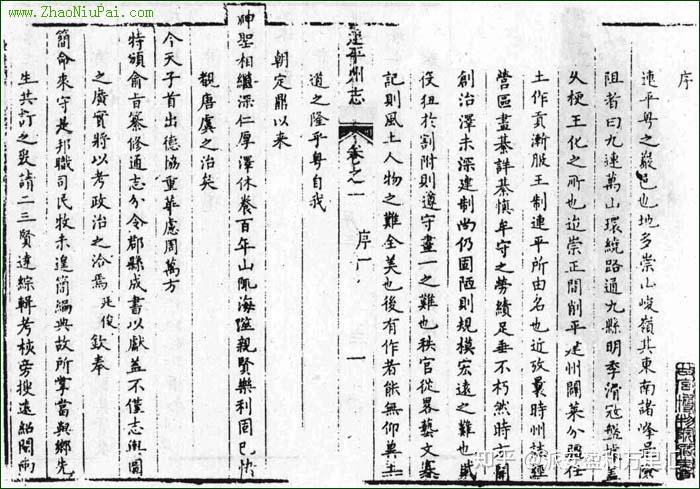 www.ZhaoNiuPai.com
序
連平粵之巖邑也地多崇山峻嶺其東南諸峰最
阻者曰九連萬山環繞路通九縣明季滑寇盤據蓋
久梗王化之所也迨崇正間削平建州闢萊分疆任
土作貢漸服王制連平所由名也近攷曩時州誌經
營區畫綦詳綦慎牟守之勞績足垂不朽然時方開
創治澤未深建制尚仍固陋則規模宏遠之難也賦
役狃於割附則遵守畫一之難也秩官從畧藝文寡
記則風土人物之難全美也後有作者能無仰冀
連平州志
卷之一
序一
道之隆乎粵自我
朝定鼎以來
神聖相繼深仁厚澤休養百年山陬海澨親賢樂利固已恍
覩唐虞之治矣
今天子首出德協重華慮周萬方
特頒俞旨纂修通志分令郡縣成書以獻蓋不僅志輿圖
之廣實將以考政治之洽焉廷俊欽奉
簡命來守是邦職司民牧未遑簡編典故所掌當與鄉先
生共訂之爰請二三賢達綜輯考核旁搜遠紹閱兩
知乎